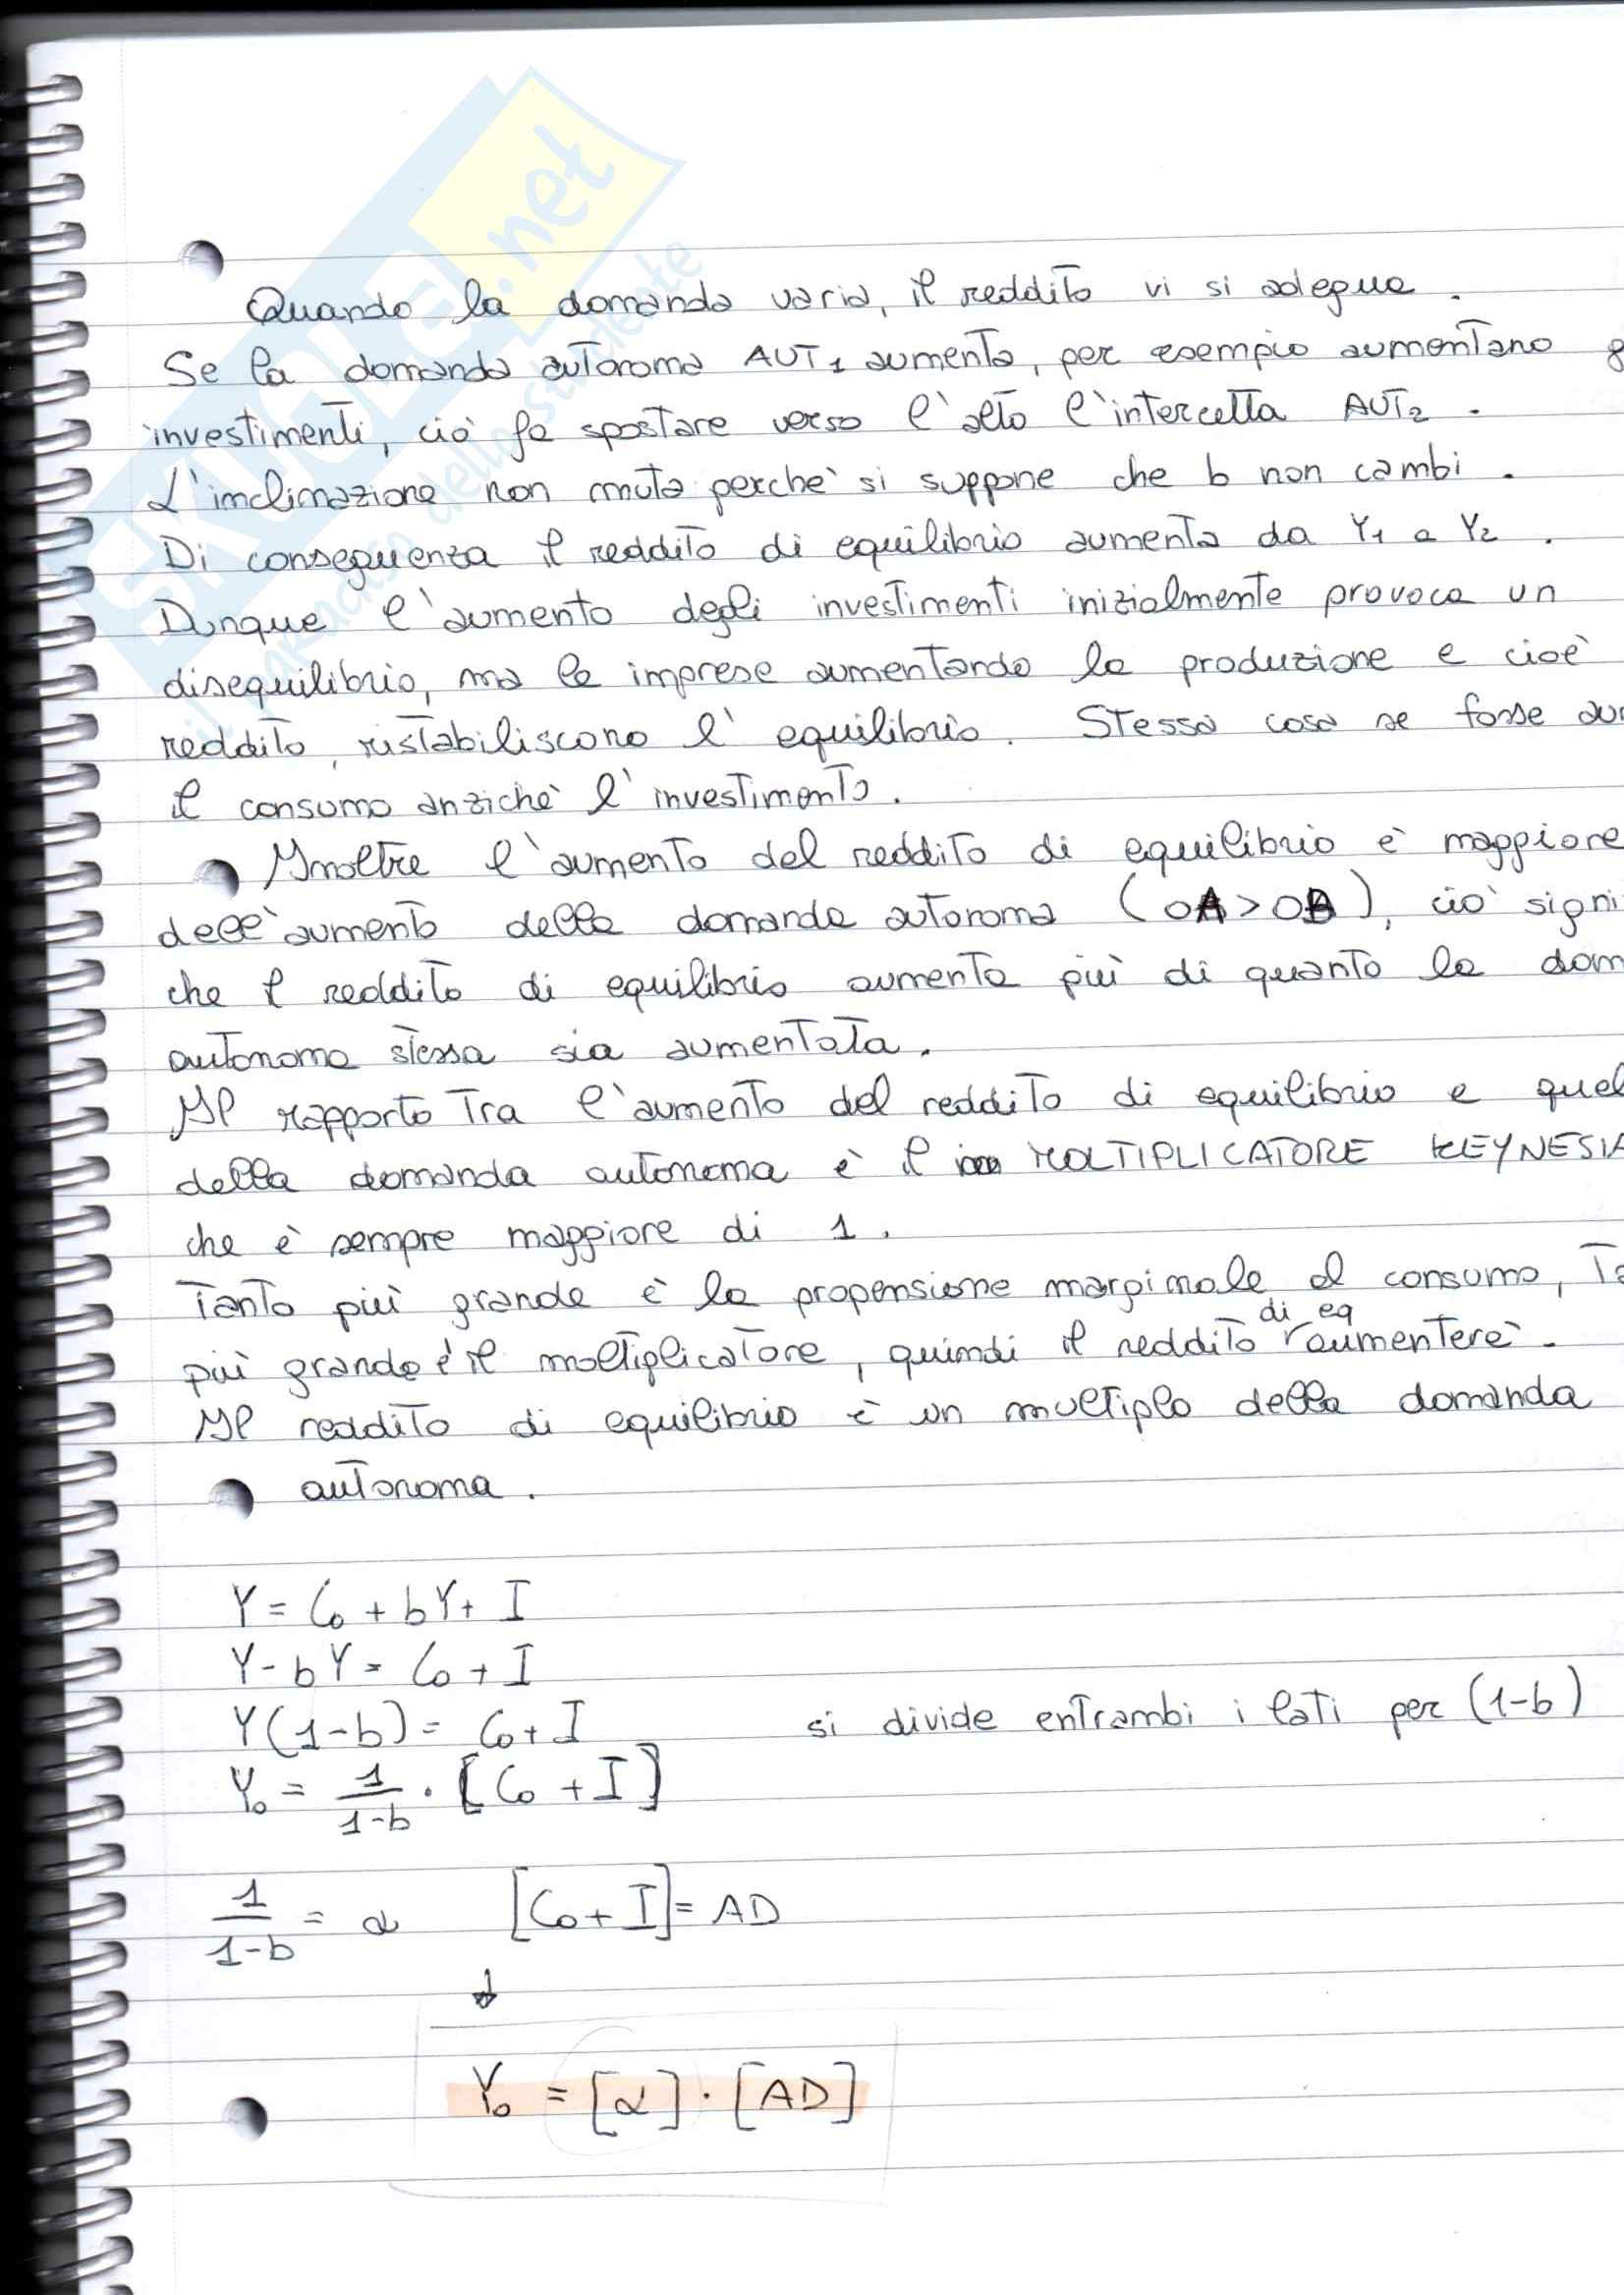 SKUOLA.net
il paradiso dello studente
Quando la domanda varia, il reddito vi si adegua.
Se la domanda autonoma AUT₁ aumenta, per esempio aumentano g
investimenti, ciò fa spostare verso l'alto l'intercetta AUT₂.
L'inclinazione non muta perchè si suppone che b non cambi.
Di conseguenza il reddito di equilibrio aumenta da Y₁ a Y₂.
Dunque l'aumento degli investimenti inizialmente provoca un
disequilibrio, ma le imprese aumentando la produzione e cioè
reddito, ristabiliscono l'equilibrio. Stessa cosa se fosse au
il consumo anzichè l'investimento.
Inoltre l'aumento del reddito di equilibrio è maggiore
dell'aumento della domanda autonoma (OA>OB), ciò signi
che il reddito di equilibrio aumenta più di quanto la dom
autonoma stessa sia aumentata.
Il rapporto tra l'aumento del reddito di equilibrio e quel
della domanda autonoma è il MOLTIPLICATORE KEYNESIA
che è sempre maggiore di 1.
Tanto più grande è la propensione marginale al consumo, Ta
di eq
più grande è il moltiplicatore, quindi il reddito aumenterà.
Il reddito di equilibrio è un multiplo della domanda
autonoma.
Y = C₀ + bY + I
Y - bY = C₀ + I
Y(1-b) = C₀ + I si divide entrambi i lati per (1-b)
Y₀ = 1/1-b · [C₀ + I]
1/1-b = α [C₀ + I] = AD
↓
Y₀ = [α] · [AD]